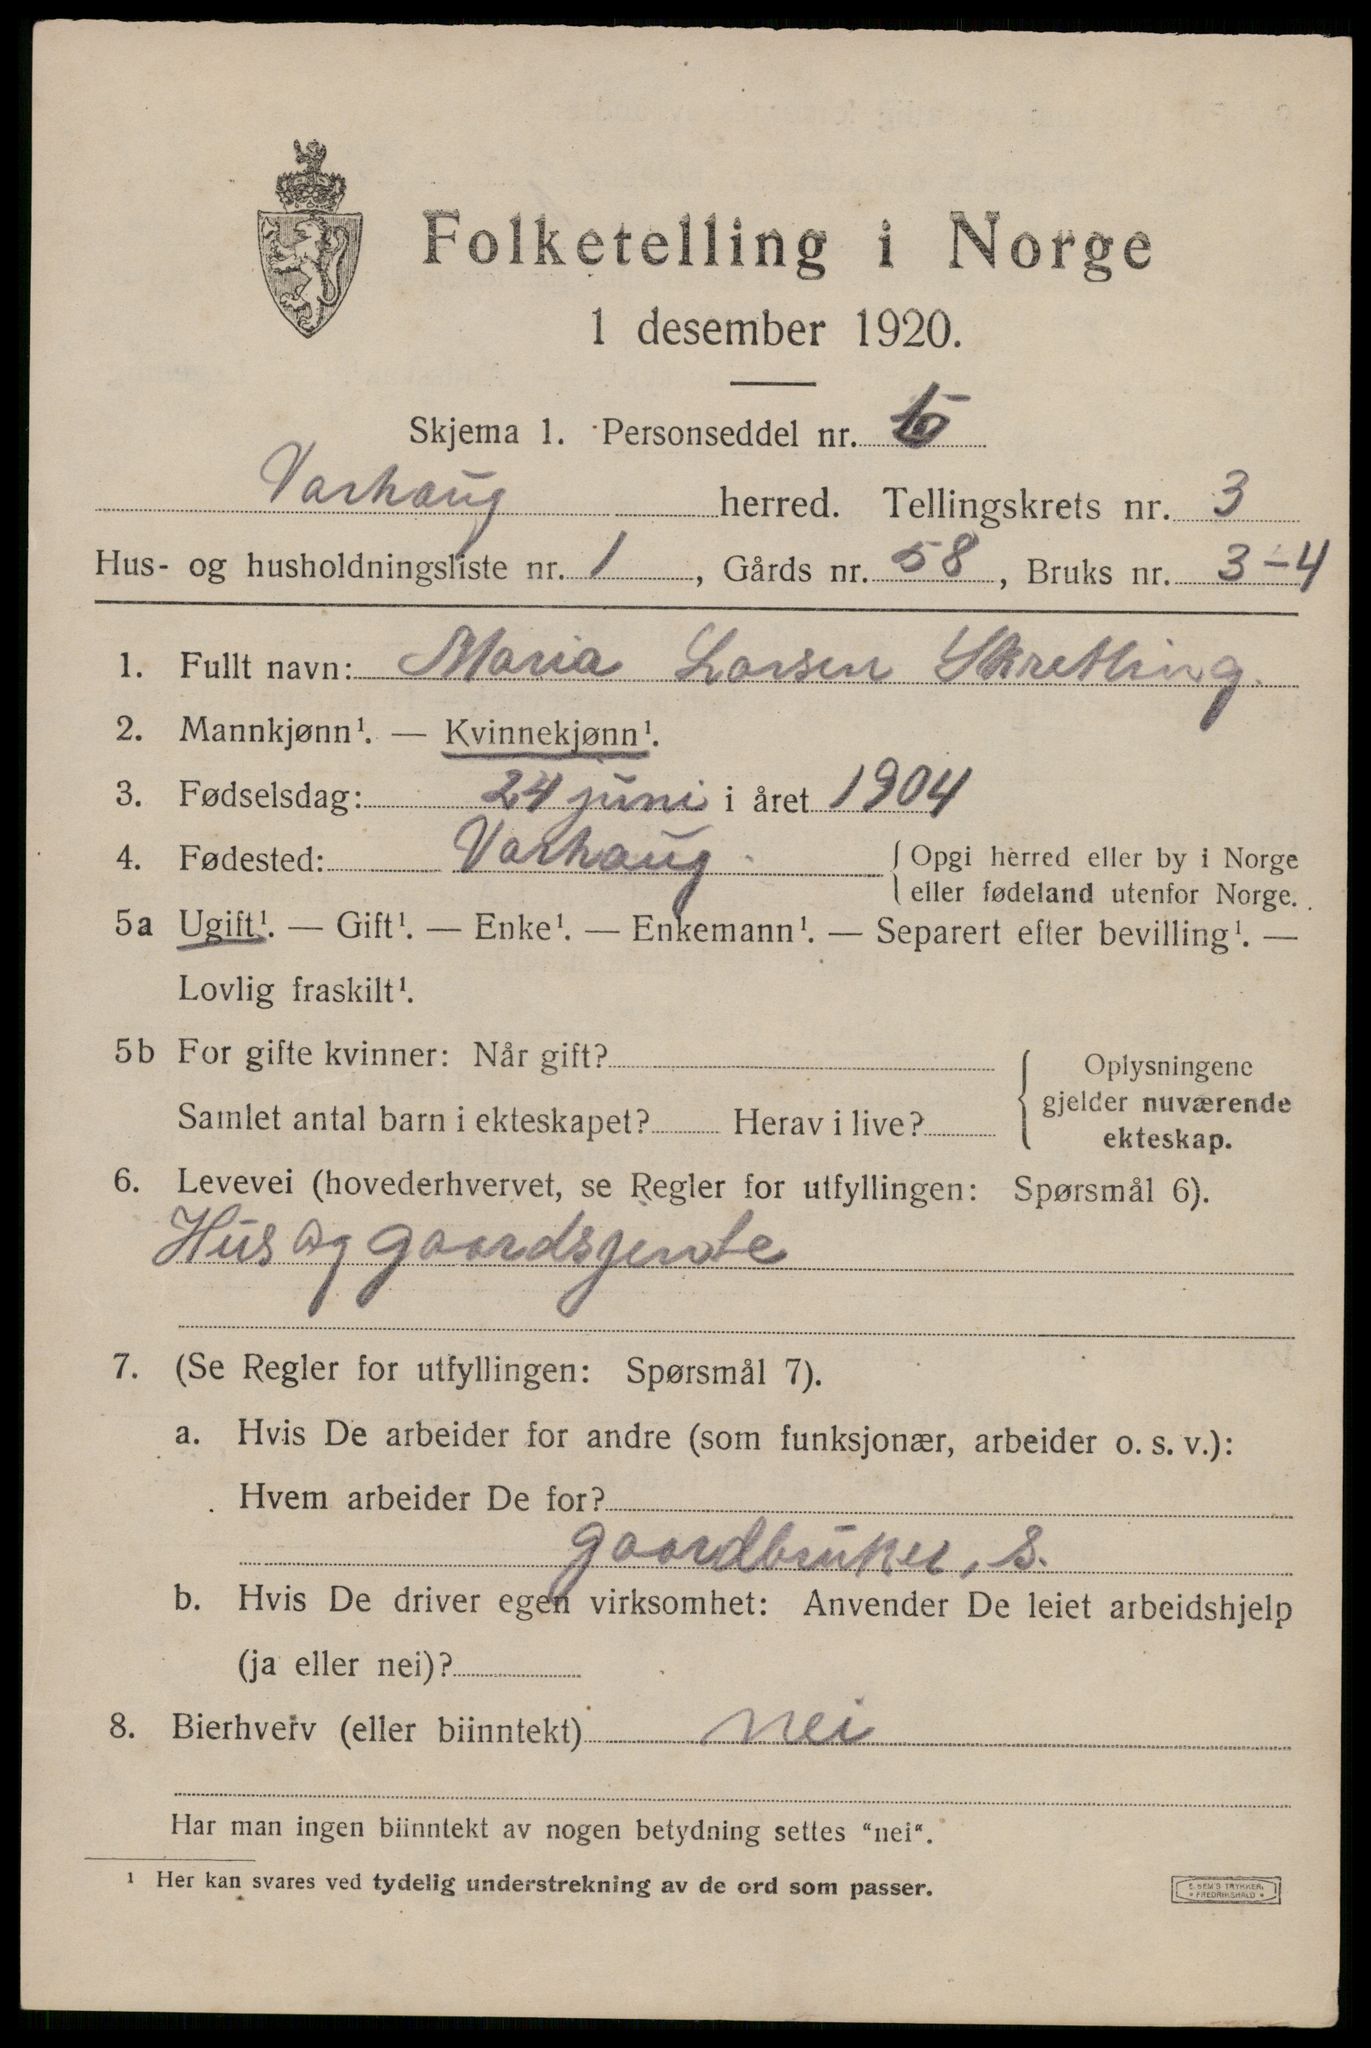 Folketelling i Norge
1 desember 1920.
Skjema 1. Personseddel nr. 5
Varhaug herred. Tellingskrets nr. 3
Hus- og husholdningsliste nr. 1, Gårds nr. 58, Bruks nr. 3-4
1. Fullt navn: Maria Larsen Skretting.
2. Mannkjønn¹. — Kvinnekjønn¹.
3. Fødselsdag: 24 juni i året 1904
4. Fødested: Varhaug { Opgi herred eller by i Norge
eller fødeland utenfor Norge.
5a Ugift¹. — Gift¹. — Enke¹. — Enkemann¹. — Separert efter bevilling¹. —
Lovlig fraskilt¹.
5b For gifte kvinner: Når gift? { Oplysningene
gjelder nuværende
Samlet antal barn i ekteskapet? Herav i live?
ekteskap.
6. Levevei (hovederhvervet, se Regler for utfyllingen: Spørsmål 6).
Hus og gaardsjente
7. (Se Regler for utfyllingen: Spørsmål 7).
a. Hvis De arbeider for andre (som funksjonær, arbeider o. s. v.):
Hvem arbeider De for?
gaardbruker, s.
b. Hvis De driver egen virksomhet: Anvender De leiet arbeidshjelp
(ja eller nei)?
8. Bierhverv (eller biinntekt) nei
Har man ingen biinntekt av nogen betydning settes "nei".
¹ Her kan svares ved tydelig understrekning av de ord som passer.
E. SEM'S TRYKKERI
• FREDRIKSHALD •